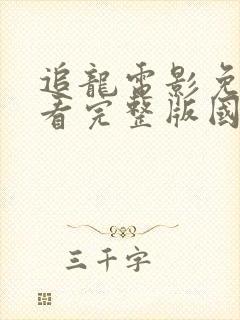 追龍電影免
看完整版國
三千字